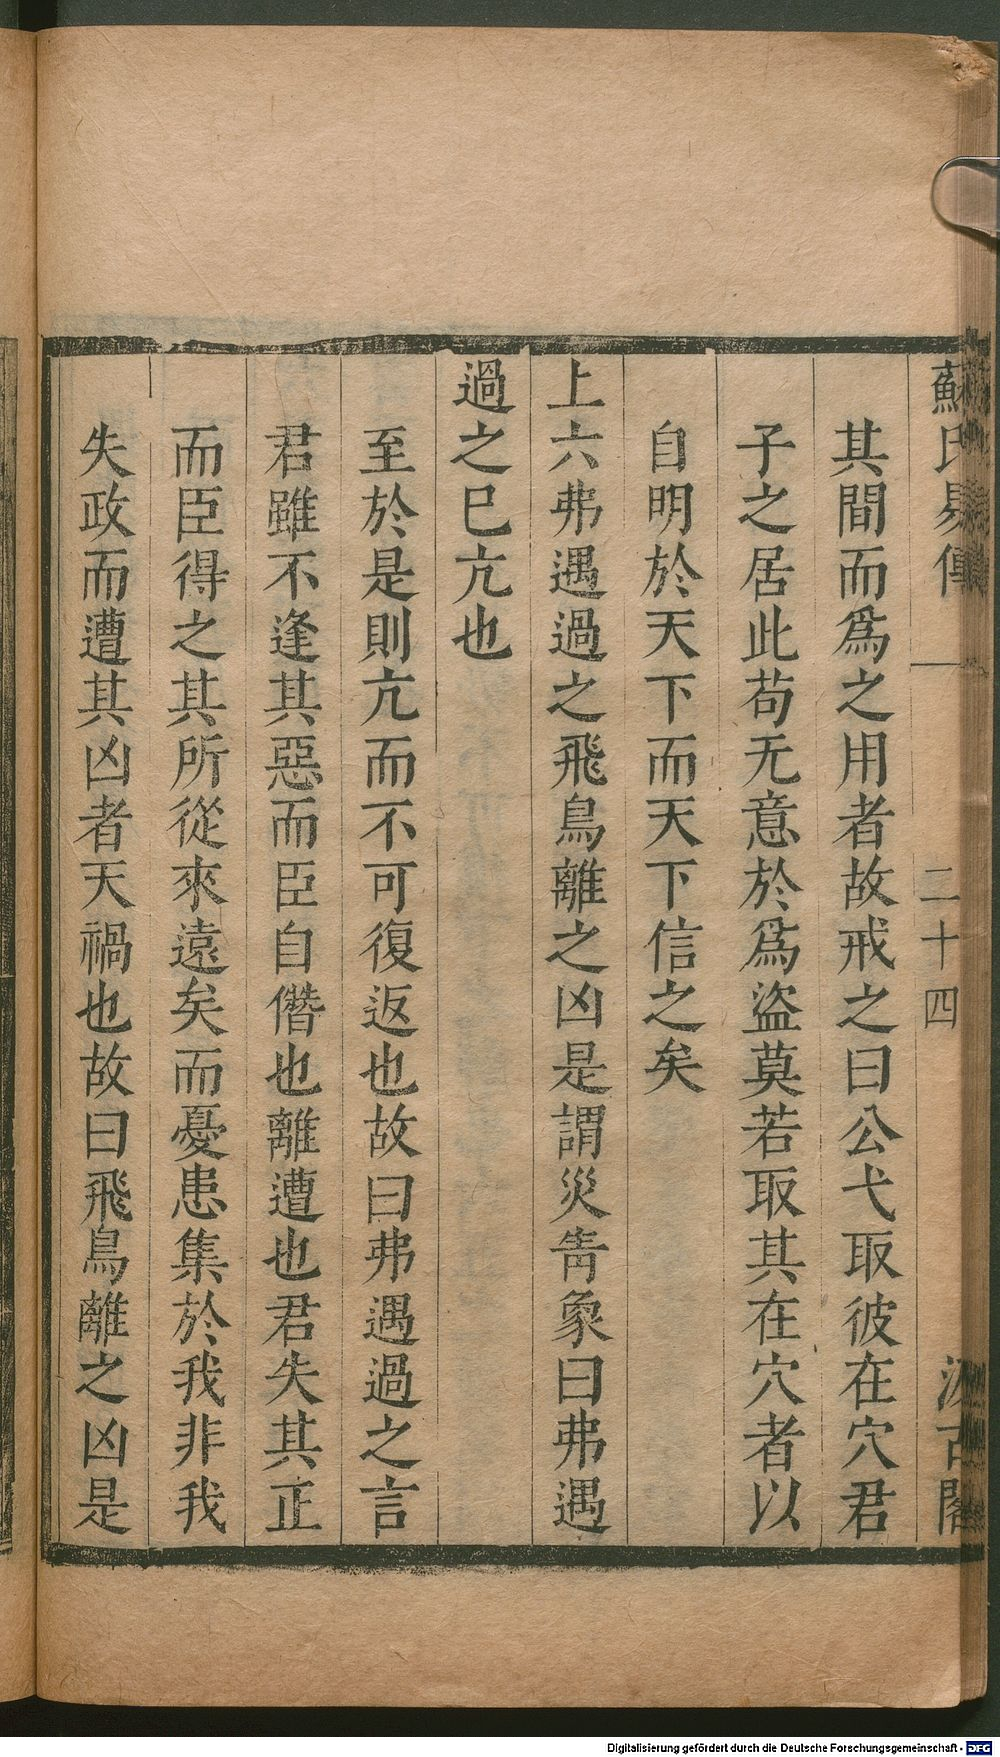 蘇氏易傳
二十四
汲古閣
其間而爲之用者故戒之曰公弋取彼在穴君
子之居此苟无意於爲盜莫若取其在穴者以
自明於天下而天下信之矣
上六弗遇過之飛鳥離之凶是謂災眚象曰弗遇
過之巳亢也
至於是則亢而不可復返也故曰弗遇過之言
君雖不逢其惡而臣自僭也離遭也君失其正
而臣得之其所從來遠矣而憂患集於我非我
失政而遭其凶者天禍也故曰飛鳥離之凶是
Digitalisierung gefördert durch die Deutsche Forschungsgemeinschaft - DFG